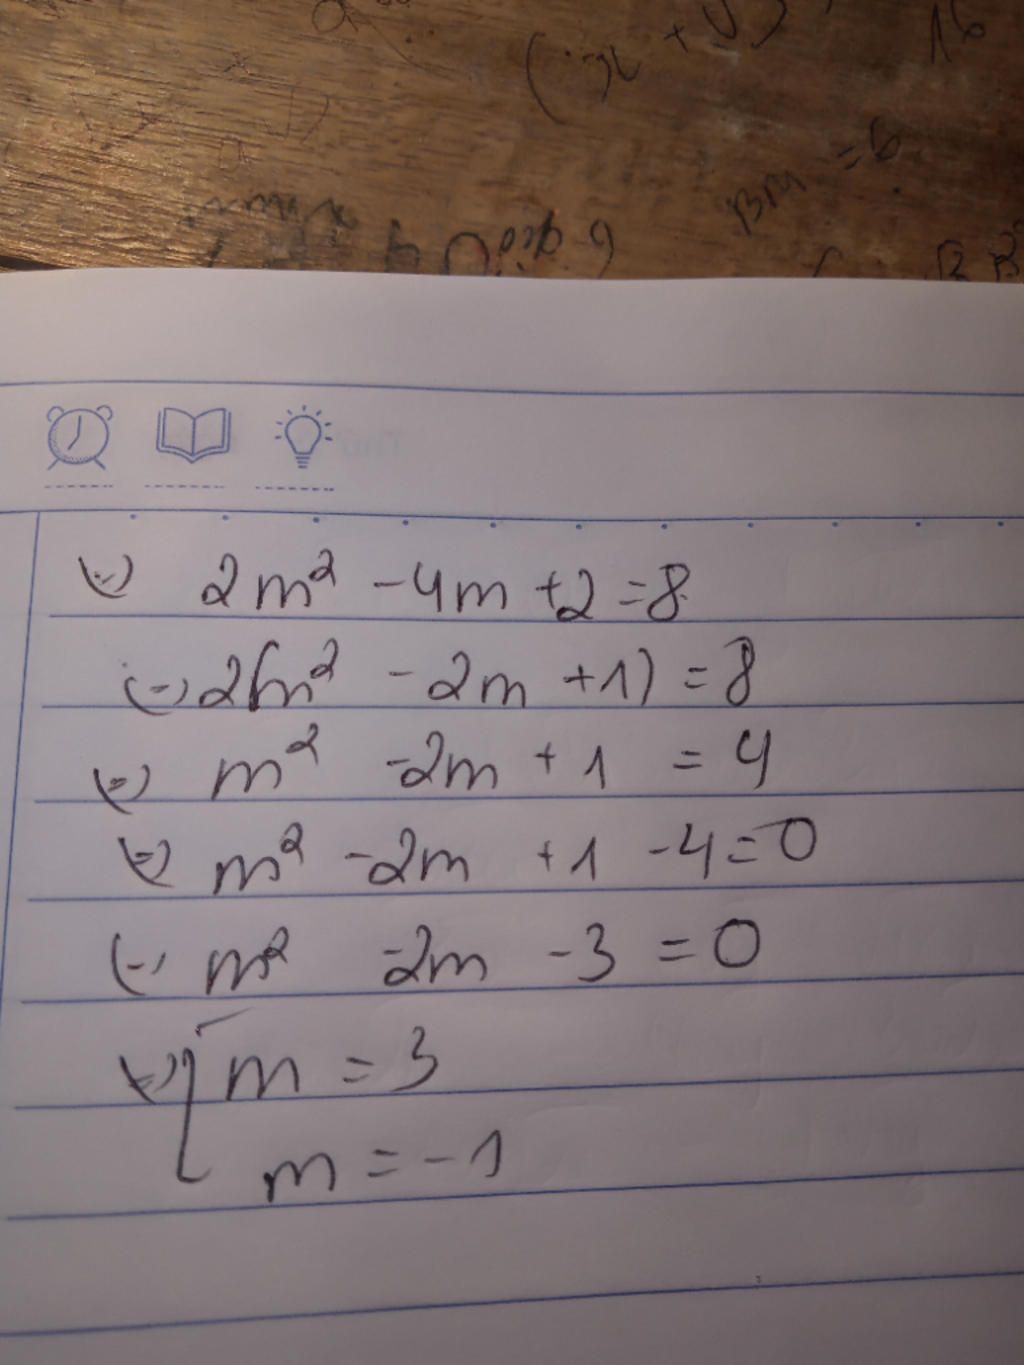 16
BM = 6
(=) 2m² - 4m + 2 = 8
(=) 2(m² - 2m + 1) = 8
(=) m² - 2m + 1 = 4
(=) m² - 2m + 1 - 4 = 0
(=) m² - 2m - 3 = 0
(=) [ m = 3
m = -1